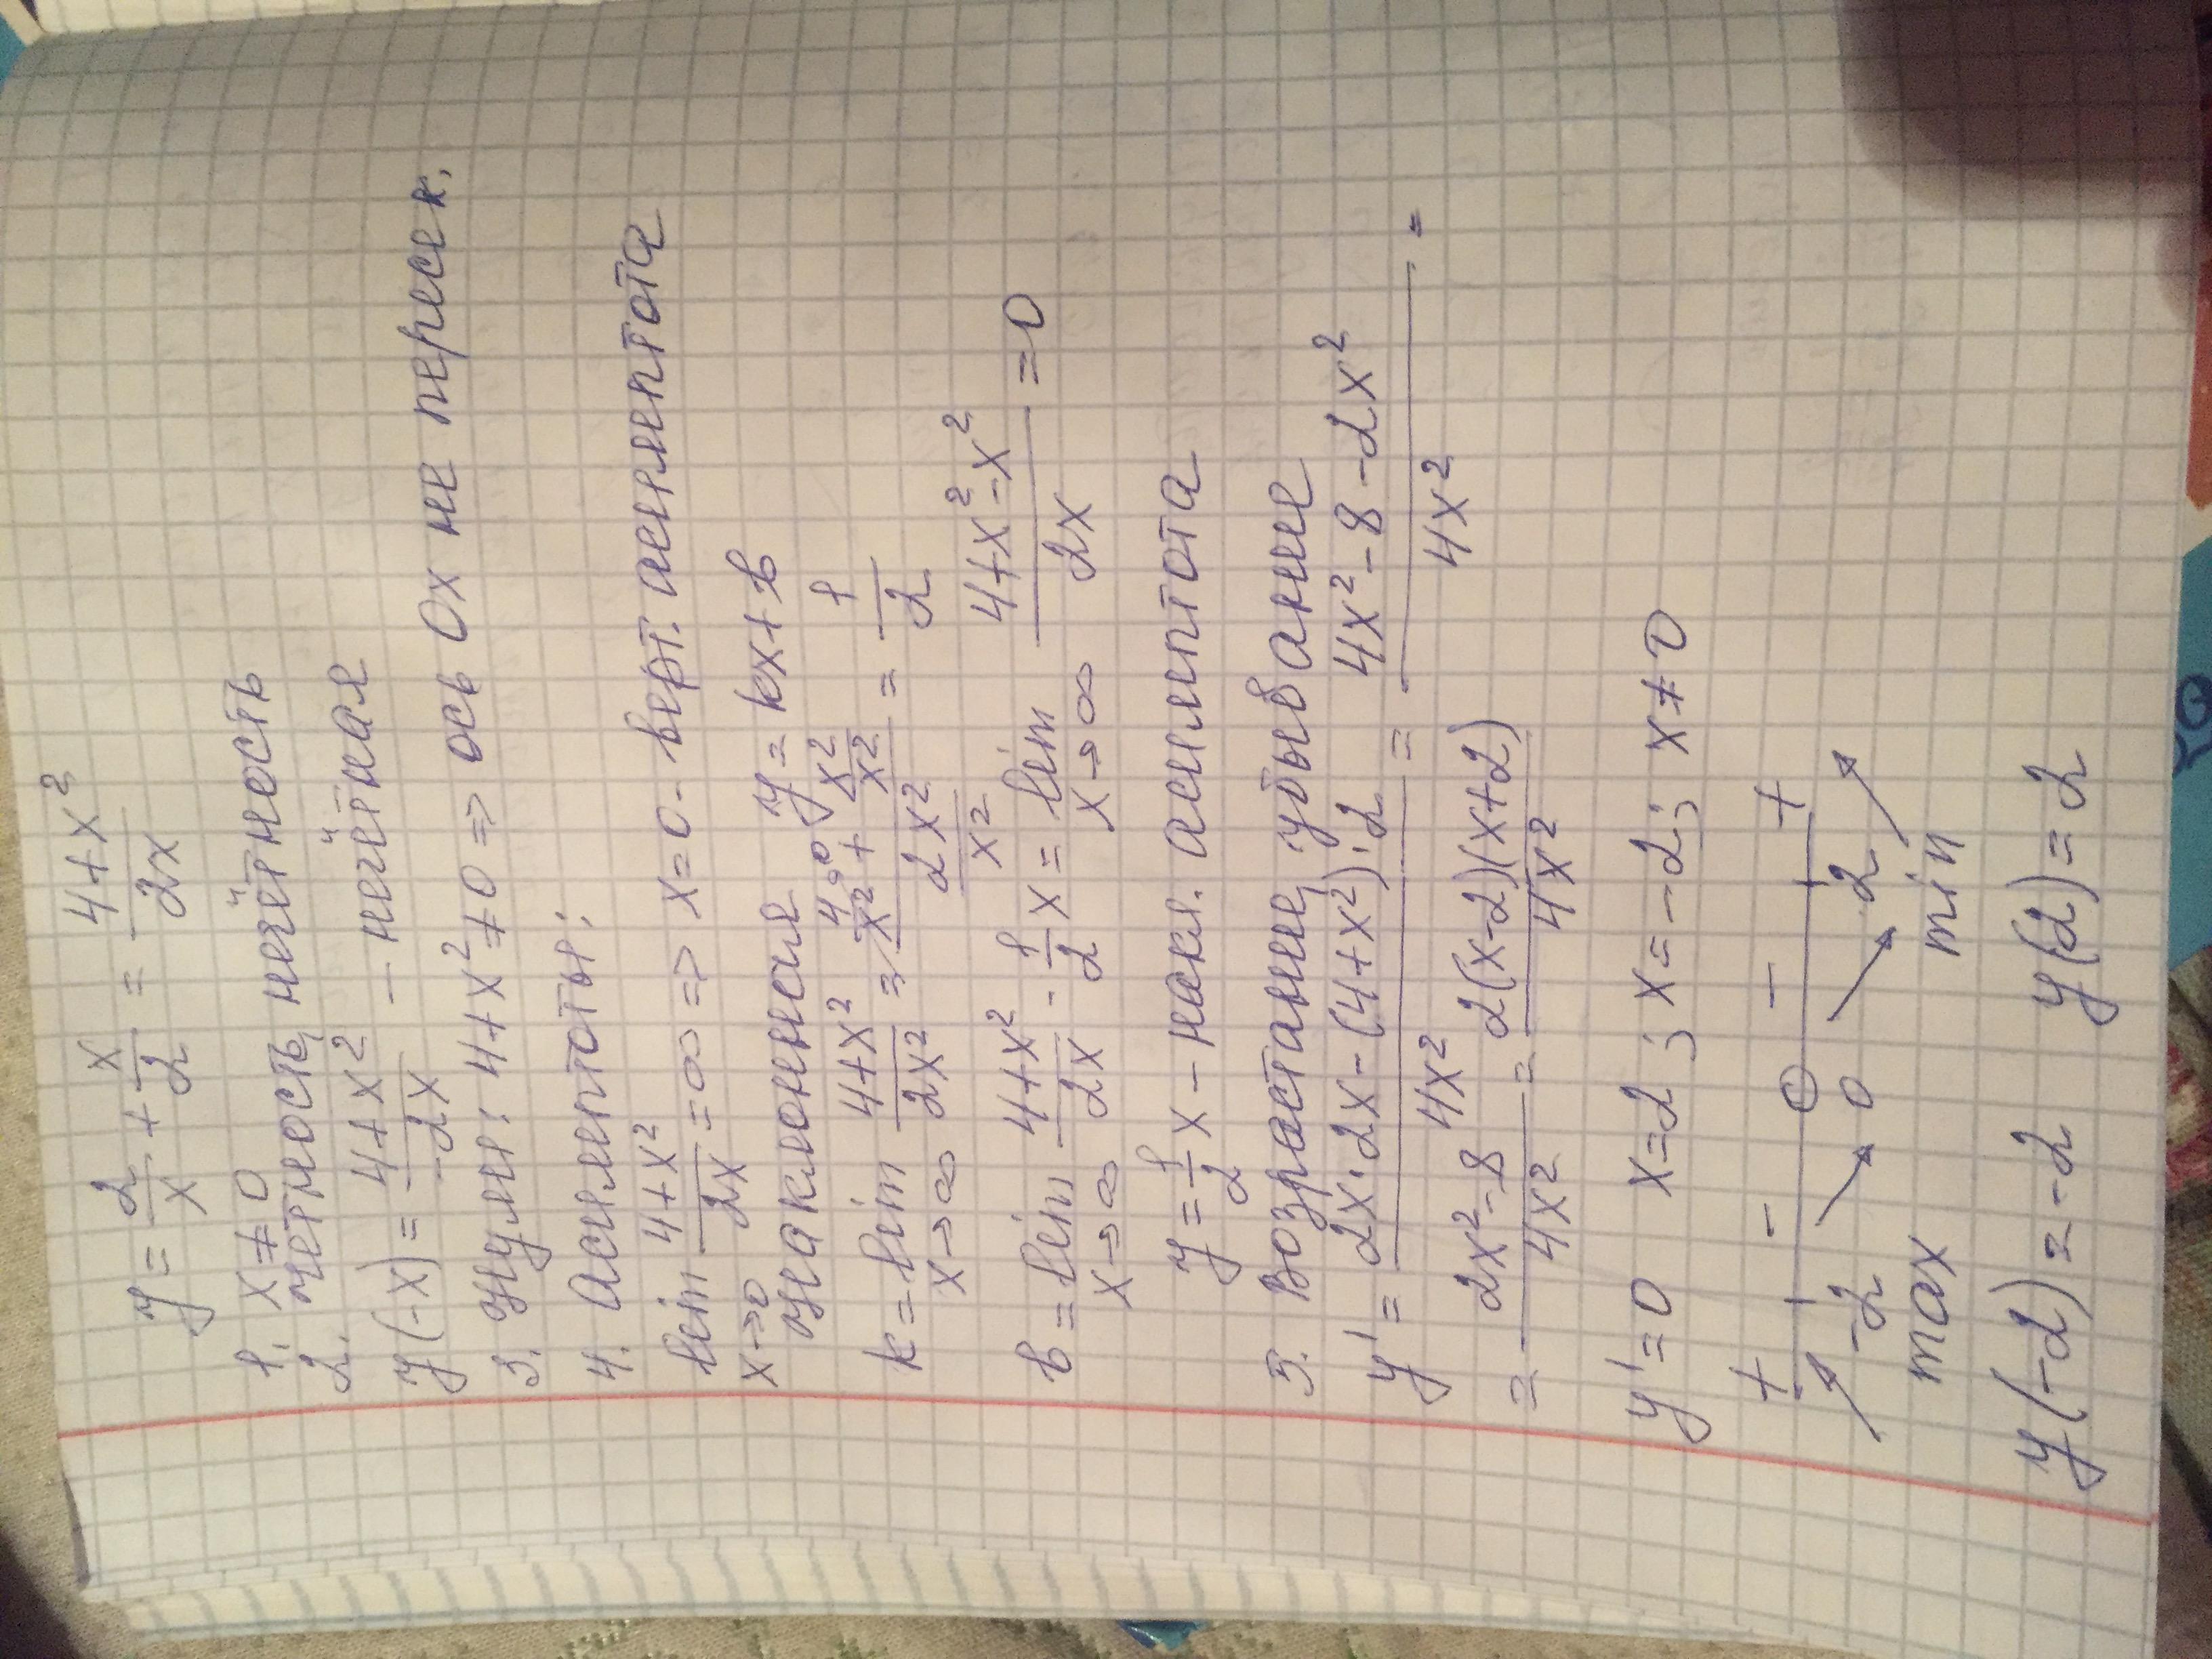 y = 2/x + x/2 = (4+x²)/(2x)
1. x ≠ 0
2. чётность, нечётность
y(-x) = (4+x²)/(-2x) - нечётная
3. Нули: 4+x² ≠ 0 => ось Ox не пересек.
4. Асимптоты:
lim x→0 (4+x²)/(2x) = ∞ => x=0 - верт. асимптота
Наклонная y = kx + b
k = lim x→∞ (4+x²)/(2x²) = (4/x² →0 + x²/x²)/(2x²/x²) = 1/2
b = lim x→∞ (4+x²)/(2x) - 1/2 x = lim x→∞ (4+x²-x²)/(2x) = 0
y = 1/2 x - накл. асимптота
5. Возрастание, убывание
y' = (2x·2x-(4+x²)·2)/(4x²) = (4x²-8-2x²)/(4x²) =
= (2x²-8)/(4x²) = (2(x-2)(x+2))/(4x²)
y' = 0 x=2 ; x=-2; x≠0
+ - - +
-2 0 2
max min
y(-2) = -2 y(2) = 2